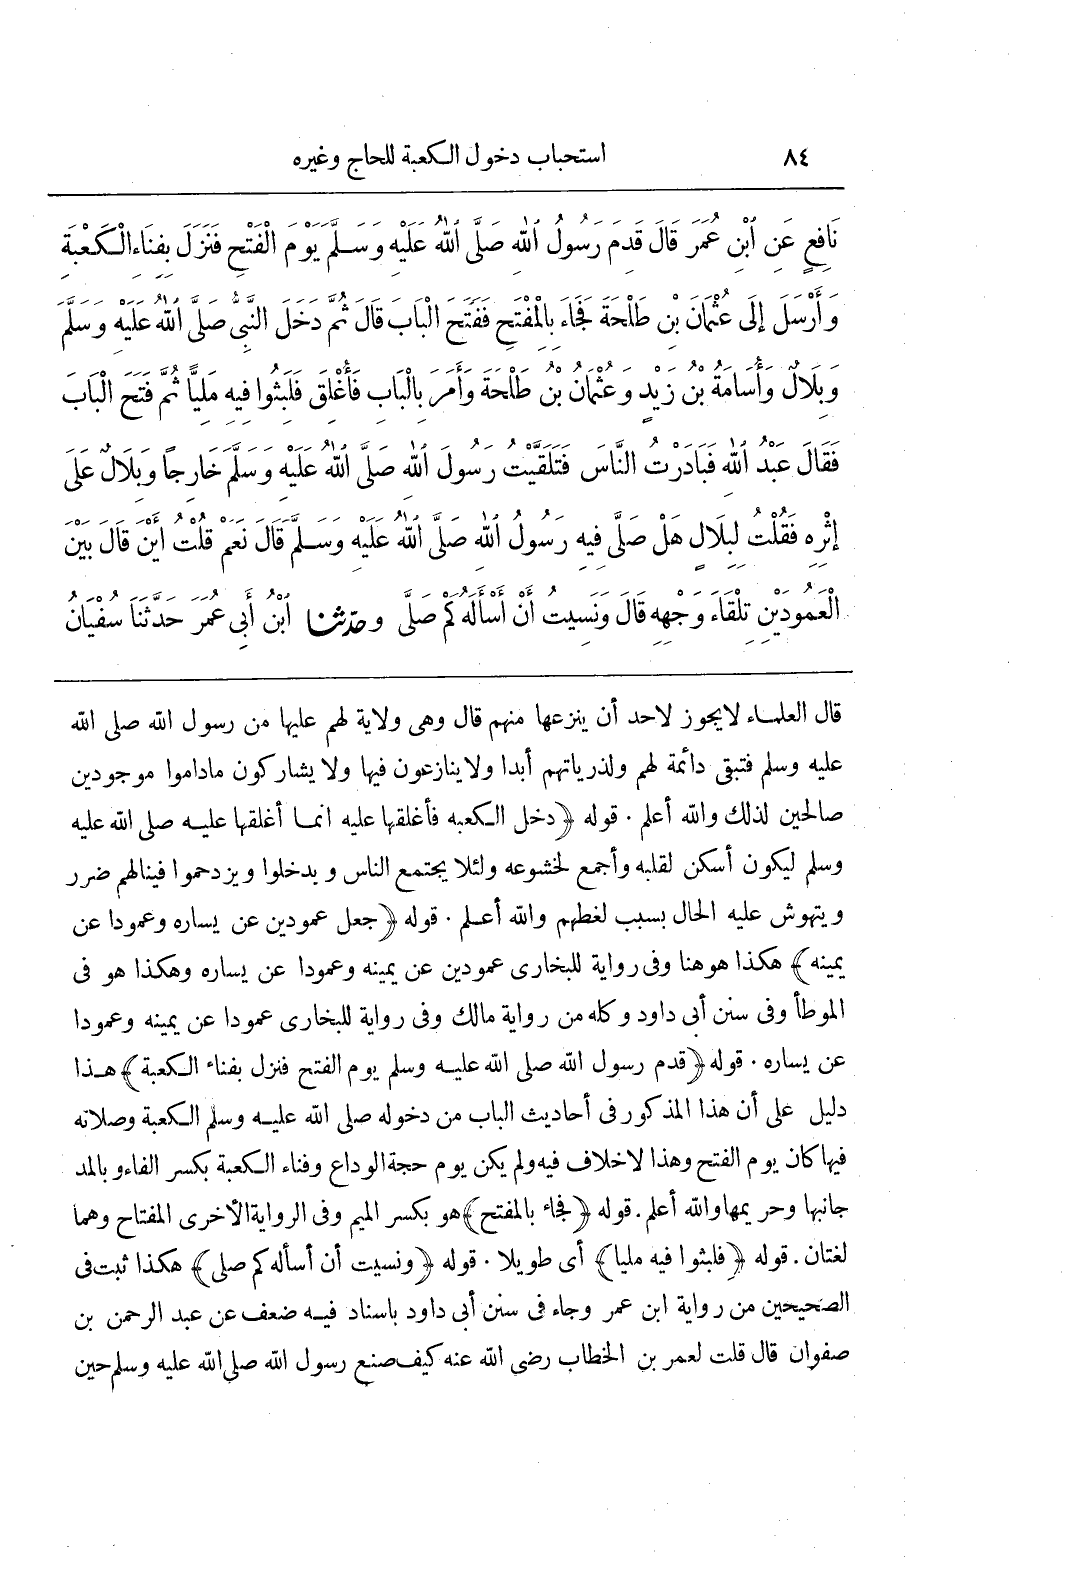 ٨٤ استحباب دخول الكعبة للحاج وغيره
نَافِعٍ عَنِ ٱبْنِ عُمَرَ قَالَ قَدِمَ رَسُولُ ٱللهِ صَلَّى ٱللهُ عَلَيْهِ وَسَلَّمَ يَوْمَ الْفَتْحِ فَنَزَلَ بِفِنَاءِ الْكَعْبَةِ
وَأَرْسَلَ إِلَى عُثْمَانَ بْنِ طَلْحَةَ فَجَاءَ بِالْمِفْتَحِ فَفَتَحَ الْبَابَ قَالَ ثُمَّ دَخَلَ النَّبِيُّ صَلَّى ٱللهُ عَلَيْهِ وَسَلَّمَ
وَبِلَالٌ وَأُسَامَةُ بْنُ زَيْدٍ وَعُثْمَانُ بْنُ طَلْحَةَ وَأَمَرَ بِالْبَابِ فَأُغْلِقَ فَلَبِثُوا فِيهِ مَلِيًّا ثُمَّ فَتَحَ الْبَابَ
فَقَالَ عَبْدُ ٱللهِ فَبَادَرْتُ النَّاسَ فَتَلَقَّيْتُ رَسُولَ ٱللهِ صَلَّى ٱللهُ عَلَيْهِ وَسَلَّمَ خَارِجًا وَبِلَالٌ عَلَى
إِثْرِهِ فَقُلْتُ لِبِلَالٍ هَلْ صَلَّى فِيهِ رَسُولُ ٱللهِ صَلَّى ٱللهُ عَلَيْهِ وَسَلَّمَ قَالَ نَعَمْ قُلْتُ أَيْنَ قَالَ بَيْنَ
الْعَمُودَيْنِ تِلْقَاءَ وَجْهِهِ قَالَ وَنَسِيتُ أَنْ أَسْأَلَهُ كَمْ صَلَّى وحدثنا ٱبْنُ أَبِي عُمَرَ حَدَّثَنَا سُفْيَانُ
قال العلماء لايجوز لاحد أن ينزعها منهم قال وهى ولاية لهم عليها من رسول الله صلى الله
عليه وسلم فتبقى دائمة لهم ولذرياتهم أبدا ولاينازعون فيها ولا يشاركون ماداموا موجودين
صالحين لذلك والله أعلم . قوله ﴿دخل الكعبه فأغلقها عليه انما أغلقها عليه صلى الله عليه
وسلم ليكون أسكن لقلبه وأجمع لخشوعه ولئلا يجتمع الناس ويدخلوا ويزدحموا فينالهم ضرر
ويتهوش عليه الحال بسبب لغطهم والله أعلم . قوله ﴿جعل عمودين عن يساره وعمودا عن
يمينه﴾ هكذا هوهنا وفى رواية للبخارى عمودين عن يمينه وعمودا عن يساره وهكذا هو فى
الموطأ وفى سنن أبى داود وكله من رواية مالك وفى رواية للبخارى عمودا عن يمينه وعمودا
عن يساره . قوله ﴿قدم رسول الله صلى الله عليه وسلم يوم الفتح فنزل بفناء الكعبة﴾ هذا
دليل على أن هذا المذكور فى أحاديث الباب من دخوله صلى الله عليه وسلم الكعبة وصلاته
فيها كان يوم الفتح وهذا لاخلاف فيه ولم يكن يوم حجة الوداع وفناء الكعبة بكسر الفاء وبالمد
جانبها وحريمها والله أعلم . قوله ﴿فجاء بالمفتح﴾ هو بكسر الميم وفى الرواية الأخرى المفتاح وهما
لغتان . قوله ﴿فلبثوا فيه مليا﴾ أى طويلا . قوله ﴿ونسيت أن أسأله كم صلى﴾ هكذا ثبت فى
الصحيحين من رواية ابن عمر وجاء فى سنن أبى داود باسناد فيه ضعف عن عبد الرحمن بن
صفوان قال قلت لعمر بن الخطاب رضى الله عنه كيف صنع رسول الله صلى الله عليه وسلم حين